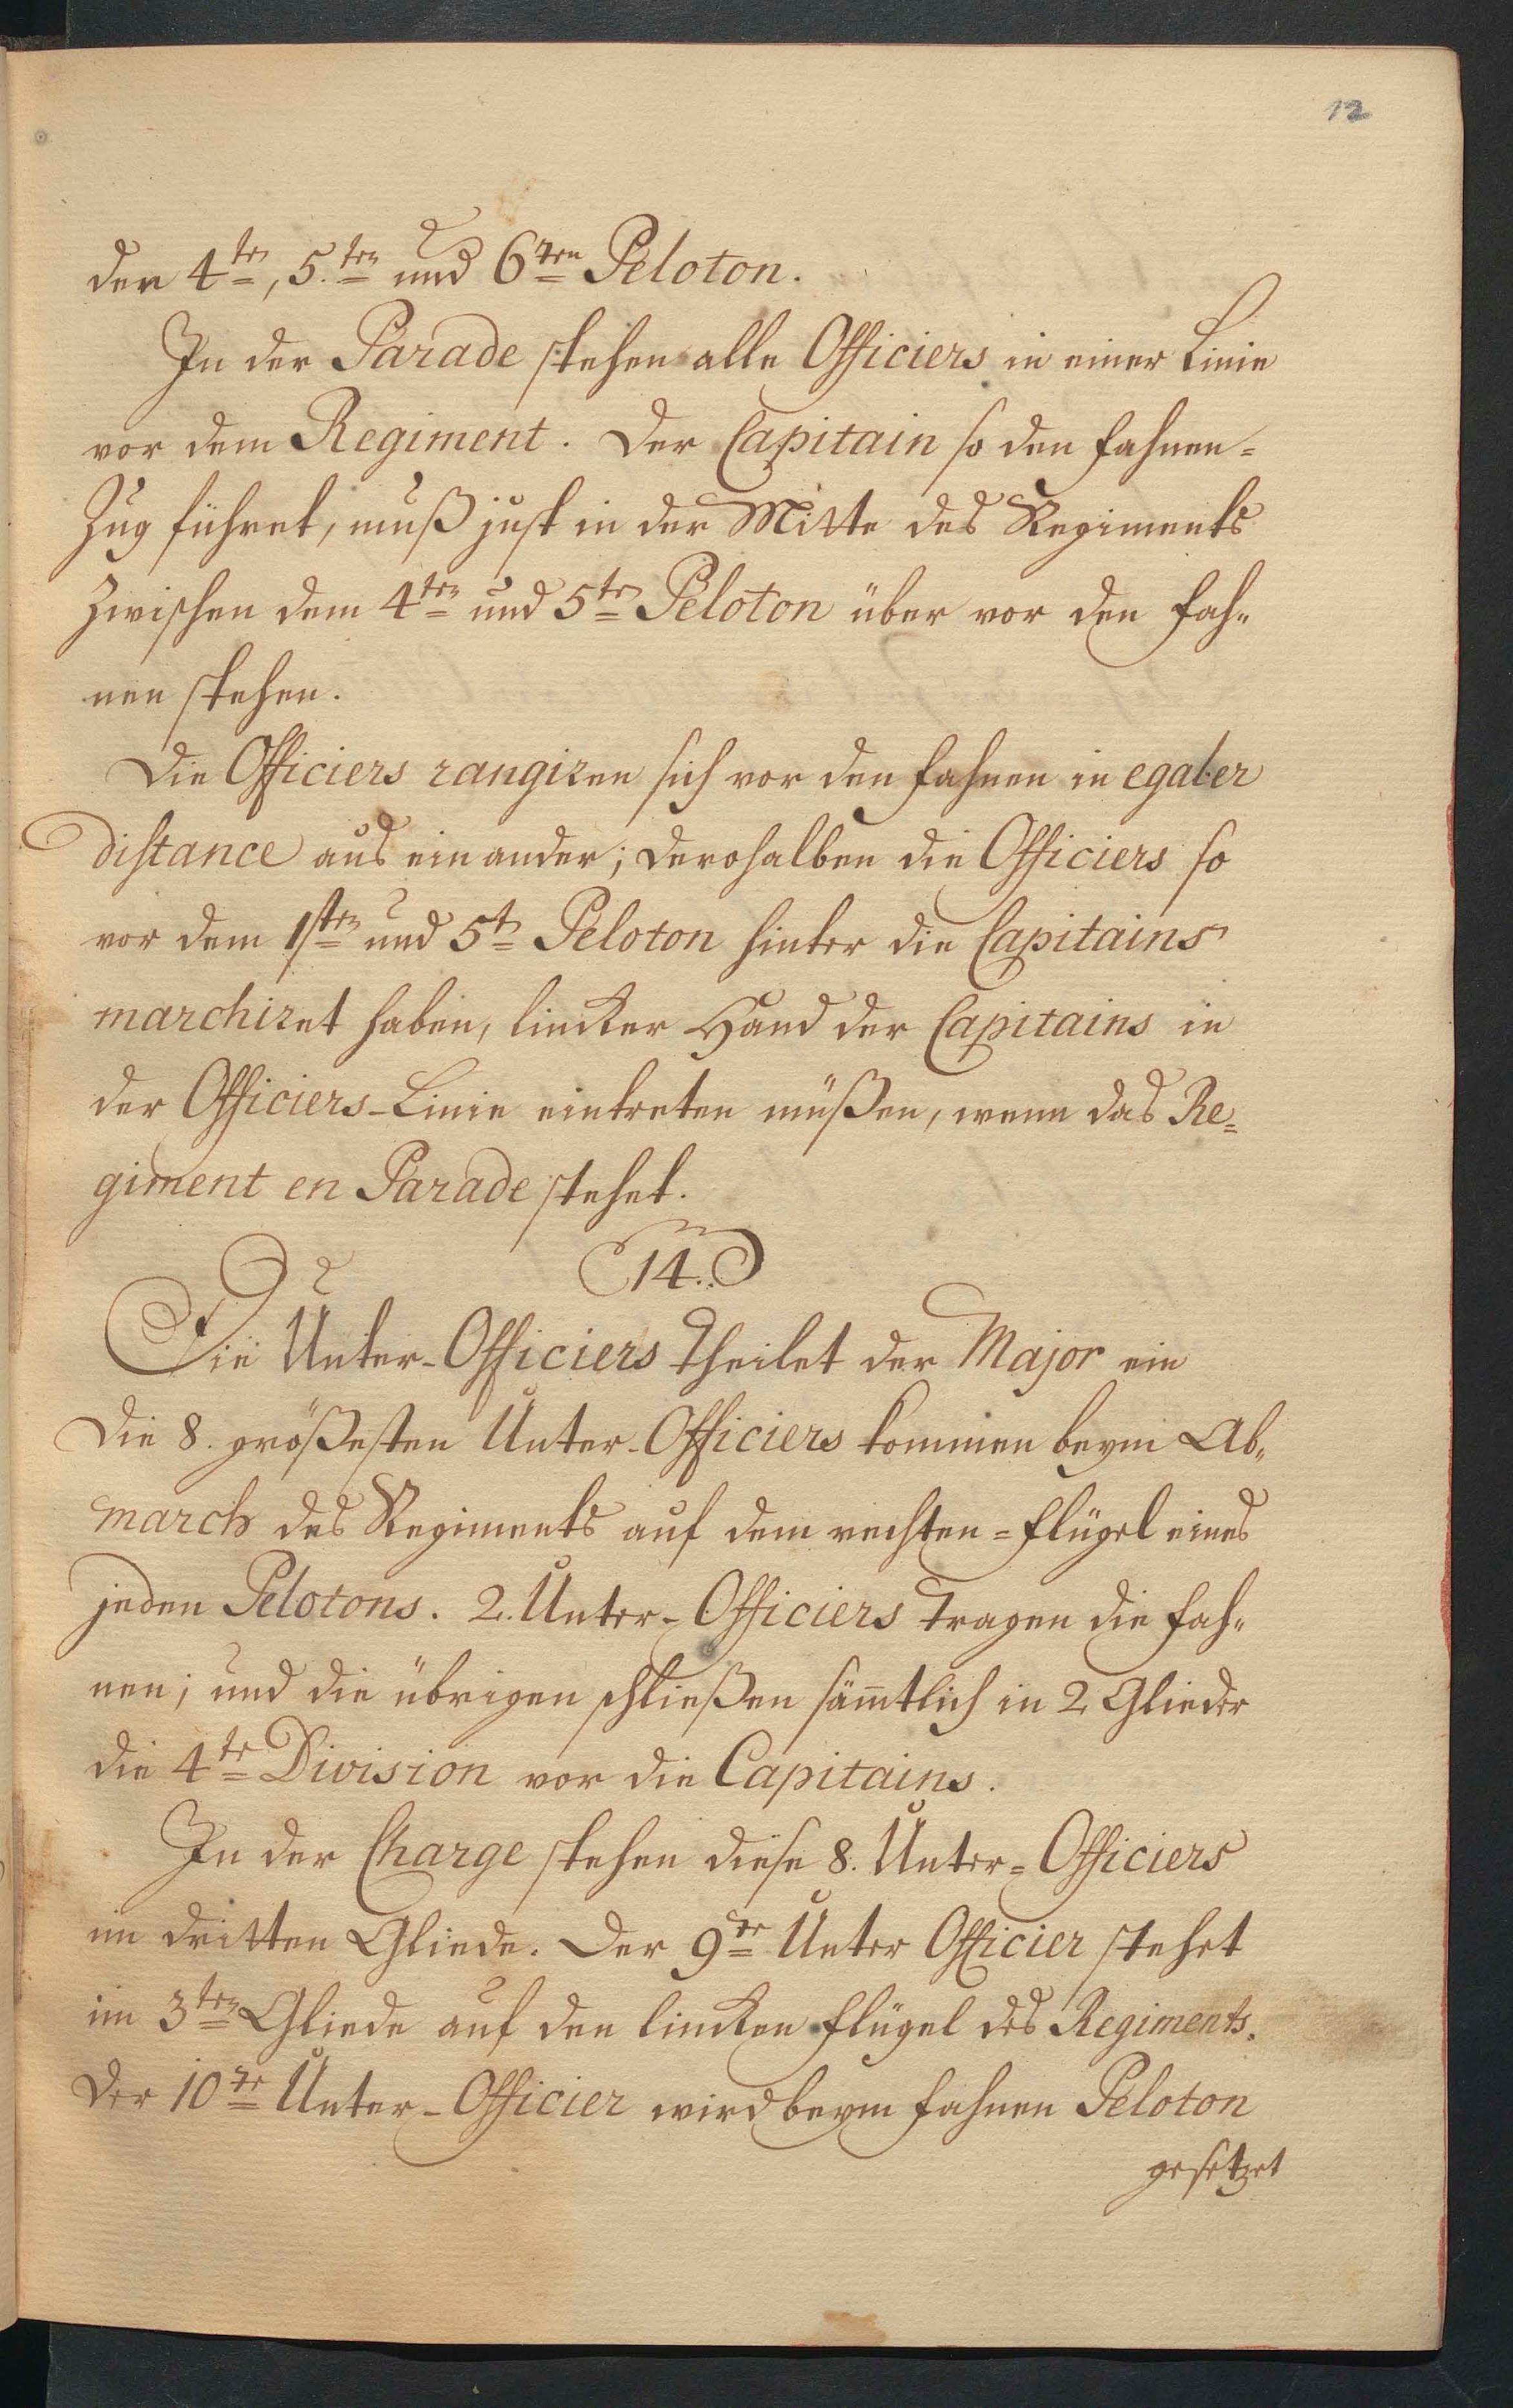 12
der 4ten, 5.ten und 6ten Peloton.
In der Parade stehen alle Officiers in einer Linie
vor dem Regiment. Der Capitain so den Fahnen=
Zug führet, muß just in der Mitte des Regiments
zwischen dem 4ten und 5ten Peloton über vor den Fah=
nen stehen.
Die Officiers rangiren sich vor den Fahnen in egaler
distance aus einander; derohalben die Officiers so
vor dem 1sten und 5ten Peloton hinter die Capitains
marchiret haben, lincker Hand der Capitains in
der Officiers-Linie eintreten müßen, wenn das Re=
giment en Parade stehet.
14.
Die Unter-Officiers theilet der Major ein
die 8. größesten Unter-Officiers kommen beym Ab=
march des Regiments auf dem rechten=Flügel eines
jeden Pelotons. 2. Unter-Officiers tragen die Fah=
nen; und die übrigen schließen sämtlich in 2 Glieder
die 4te Division vor die Capitains.
In der Charge stehen diese 8. Unter=Officiers
im dritten Gliede. Der 9te Unter Officier stehet
im 3ten Gliede auf den lincken Flügel des Regiments.
Der 10te Unter-Officier wird beym Fahnen Peloton
gesetzet